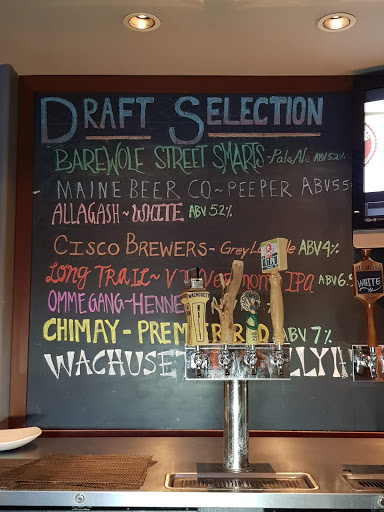 DRAFT SELECTION
BAREWOLF STREET SMARTS - Pale Ale ABV 5.2%
MAINE BEER CO ~ PEEPER ABV 5.5
ALLAGASH ~ WHITE ABV 5.2%
CISCO BREWERS - Grey ABV 4%
LONG TRAIL ~ VT IPA ABV 6.
OMMEGANG - HENNE
CHIMAY - PREMIER RED ABV 7%
WACHUSE
WHITE